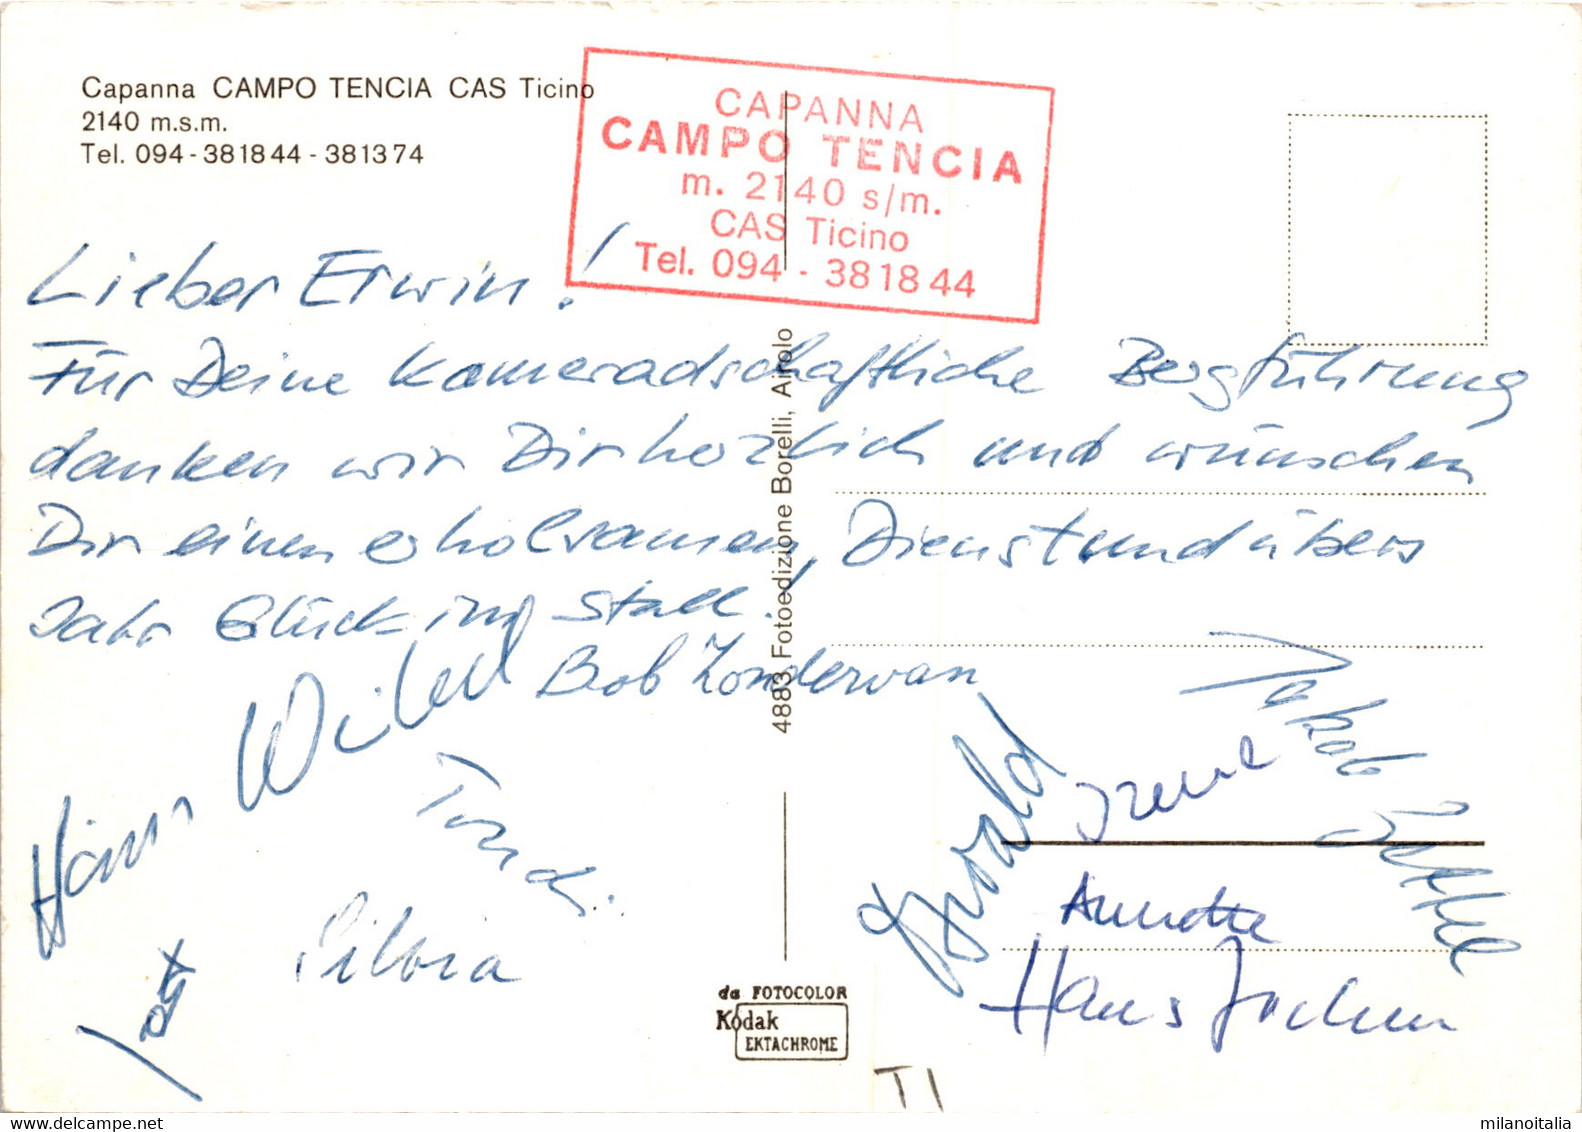 Capanna CAMPO TENCIA CAS Ticino
2140 m.s.m.
Tel. 094-381844-381374
CAPANNA
CAMPO TENCIA
m. 2140 s/m.
CAS Ticino
Tel. 094 - 381844
Lieber Erwin!
Für Deine kameradschaftliche Bergführung
danken wir Dir herzlich und wünschen
Dir einen erholsamen, Dienst und übers
Jahr Glück im Stall!
Bob Zonderwan
Hans
Silvia
Irene
Jakob
Annette
Hans Jochen
4883 Fotoedizione Borelli, Airolo
da FOTOCOLOR
Kodak
EKTACHROME
TI
milanoitalia